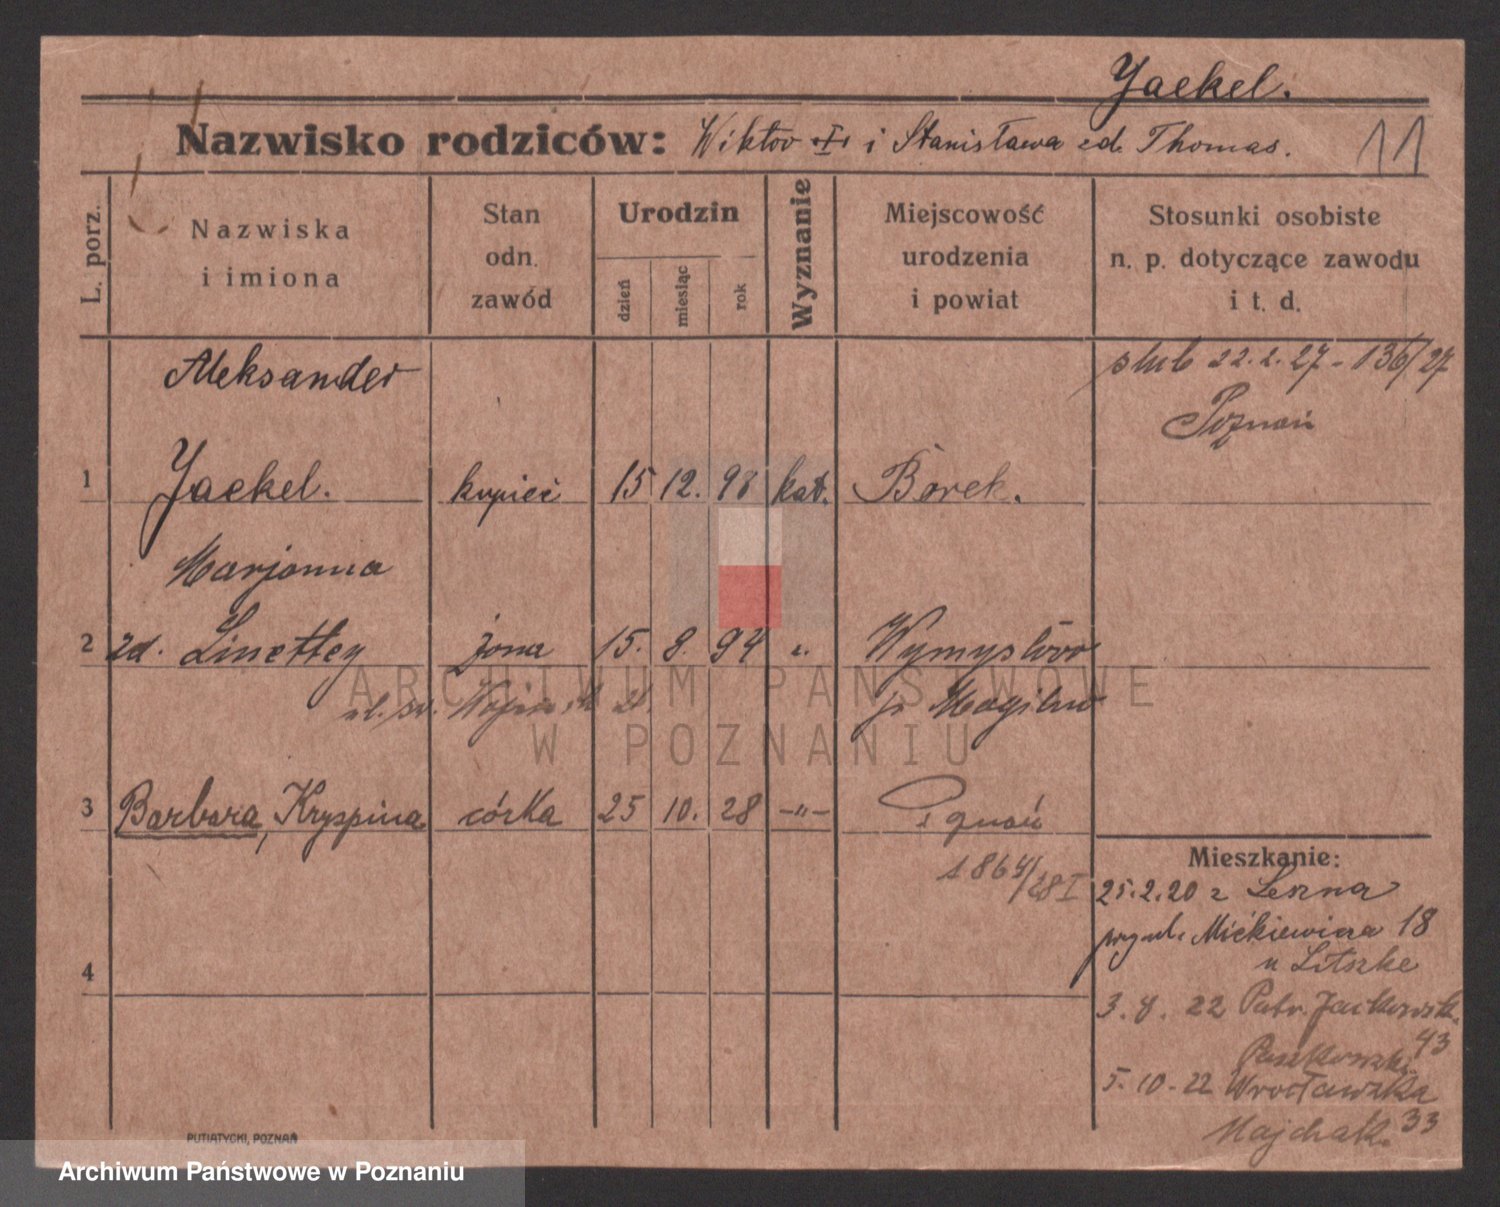 Jaekel.
Nazwisko rodziców: Wiktor i Stanisława zd. Thomas. 11
L. porz.
Nazwiska i imiona
Stan odn. zawód
Urodzin
dzień
miesiąc
rok
Wyznanie
Miejscowość urodzenia i powiat
Stosunki osobiste n. p. dotyczące zawodu i t. d.
Aleksander
ślub 22.2.27 - 136/27
Poznań
1 Jaekel. kupiec 15 12. 98 kat. Borek.
Marjanna
2 zd. Linettey żona 15. 8. 94 Wymysłowo
ul. św. p. Mogilno
3 Barbara, Kryspina córka 25 10. 28 -"- Poznań
1864/28 I
Mieszkanie:
25.2.20 z Leszna
przy ul. Mickiewicza 18
u Litzke
4
3. 4. 22 Patr. Jackowsk. 43
5. 10. 22 Wrocławska 33
Majchrzak.
PUTIATYCKI, POZNAŃ
ARCHIWUM PAŃSTWOWE
W POZNANIU
Archiwum Państwowe w Poznaniu